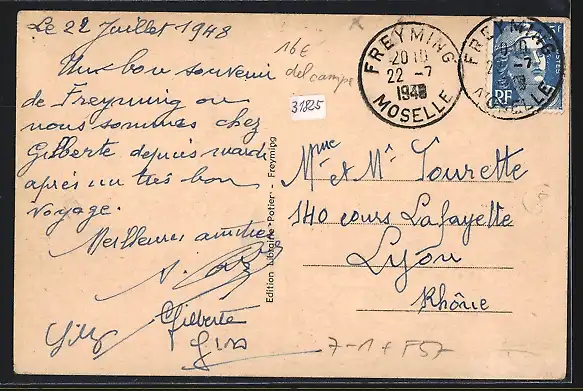 Le 22 Juillet 1948
Un bon souvenir
de Freyming ou
nous sommes chez
Gilberte depuis mardi
après un très bon
voyage.
Meilleures amitiés
Gilberte
16€
delcampe
31825
Edition Librairie Potier - Freyming
FREYMING
20 10
22 -7
1948
MOSELLE
FREYMING
MOSELLE
RF
Mme et Mr Tourette
140 cours Lafayette
Lyon
Rhône
7-1 + F57